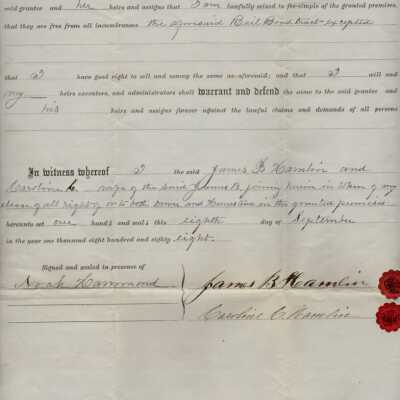 said grantee and her heirs and assigns that I am lawfully seized in fee-simple of the granted premises,
that they are free from all incumbrances the aforesaid Rail Road tract excepted
that I have good right to sell and convey the same as aforesaid; and that I will and
my heirs executors, and administrators shall warrant and defend the same to the said grantee and
his heirs and assigns forever against the lawful claims and demands of all persons
In witness whereof I the said James B Hamlin and
Caroline C. wife of the said James B. joining herein in token of my
release of all right of or to both dower and Homestead in the granted premises
hereunto set our hands and seals this eighth day of September
in the year one thousand eight hundred and eighty eight.
Signed and sealed in presence of
Noah Hammond
James B Hamlin
Caroline C. Hamlin